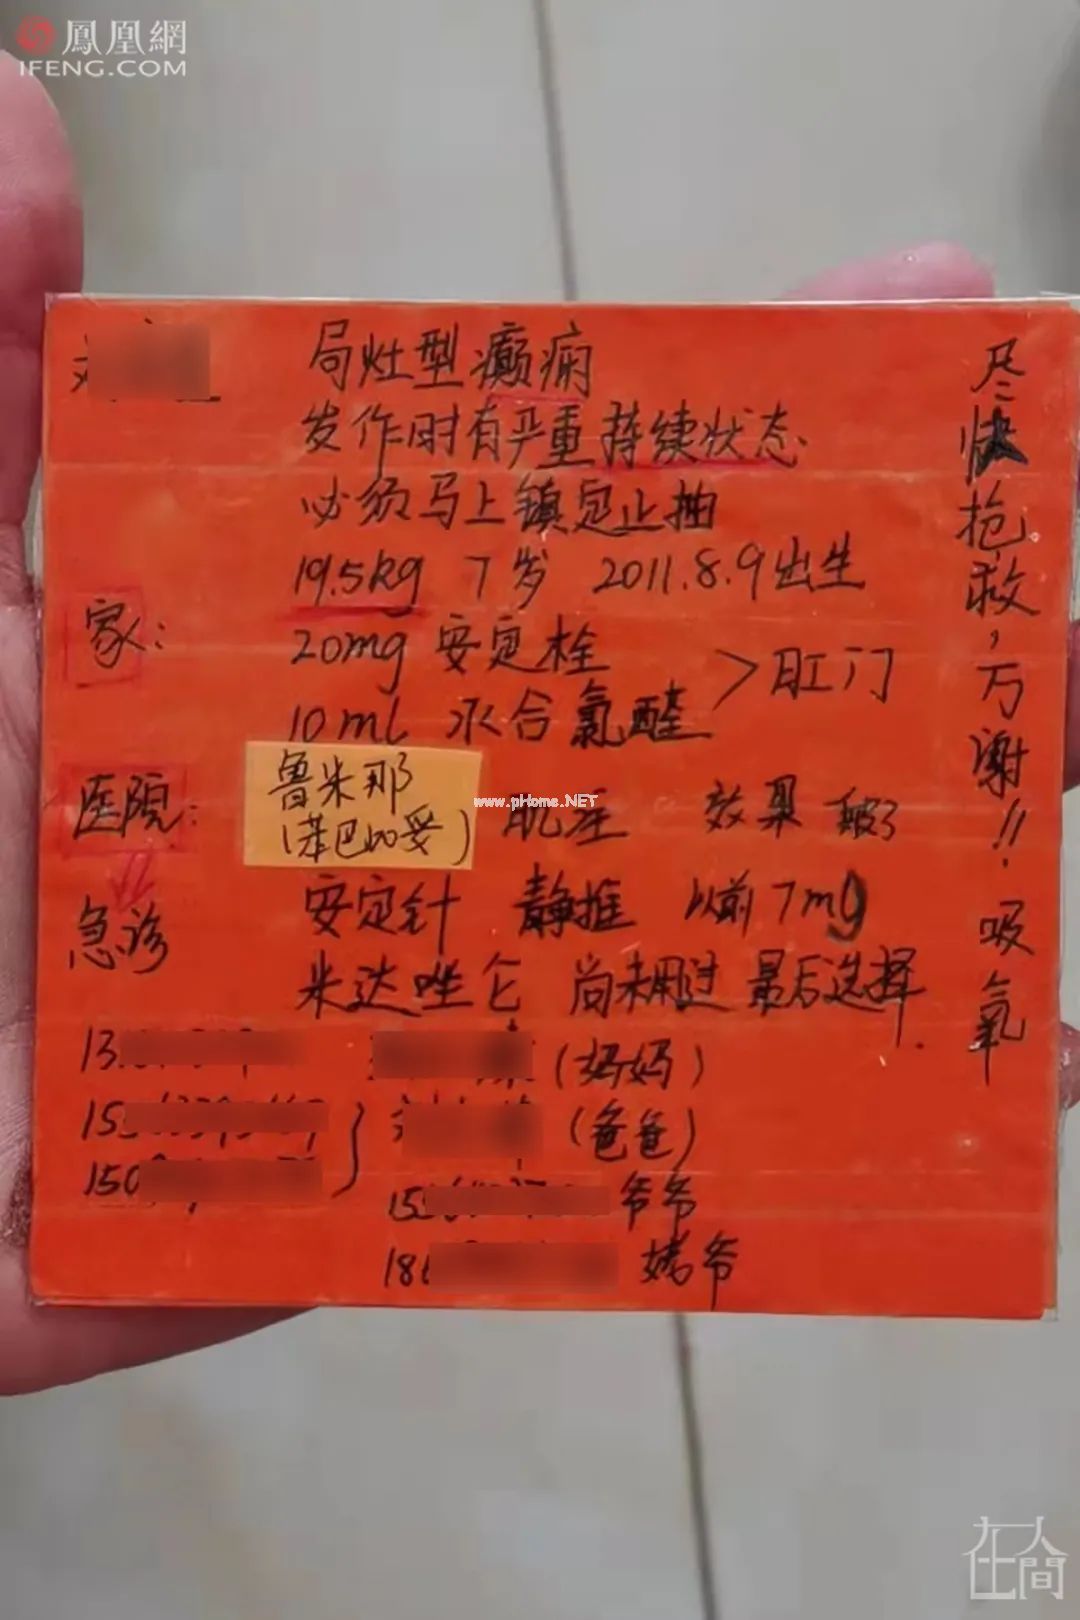 鳳凰網
IFENG.COM
局灶型癫痫
发作时有严重持续状态
必须马上镇定止抽
19.5kg 7岁 2011.8.9出生
家: 20mg 安定栓
10ml 水合氯醛 > 肛门
医院: 鲁米那
(苯巴比妥) 肌注 效果
www.pHome.NET
急诊 安定针 静推 以前7mg
米达唑仑 尚未用过 最后选择.
13
(妈妈)
15
(爸爸)
150
15 爷爷
18 姥爷
尽快抢救,万谢!!吸氧
在人間